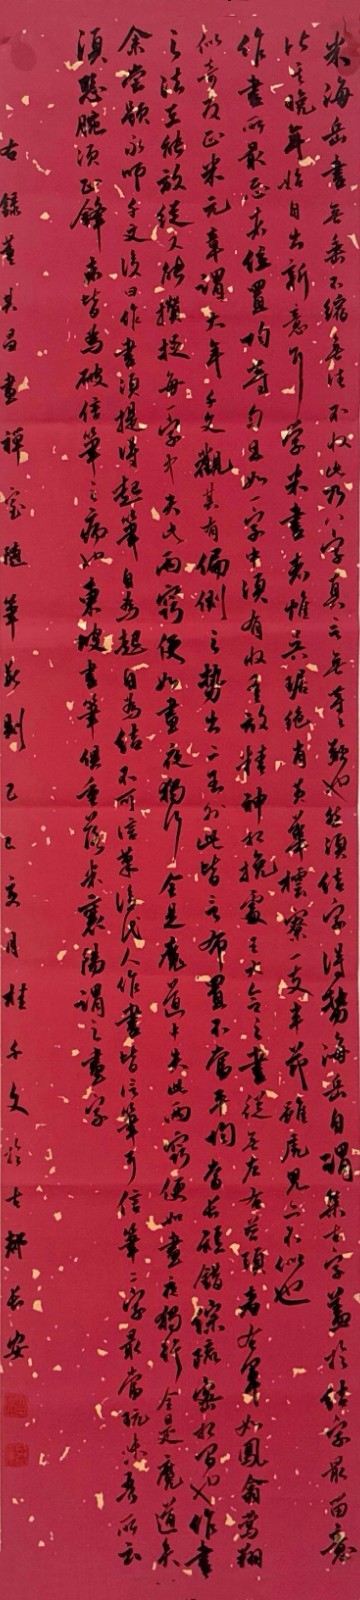 米海岳書無垂不縮無往不收此八字真言無等等咒也然須結字得勢海岳自謂集古字蓋於結字最留意
比其晚年始自出新意耳學米書者惟吳琚絕肖黃華樗寮一支半節雖虎兒亦不似也
作書所最忌者位置均等勻且如一字中須有收有放有精神相挽處王大令之書從無左右並頭者右軍如鳳翥鸞翔
似奇反正米元章謂大年千文觀其有偏側之勢出二王外此皆言布置不當平均當長短錯綜疏密相間也作書
之法在能放縱又能攢捉每一字中失此兩竅便如晝夜獨行全是魔道失此兩竅便如晝夜獨行全是魔道矣
余嘗題永師千文後曰作書須提得起筆自為起自為結不可信筆後代人作書皆信筆耳信筆二字最當玩味吾所云
須懸腕須正鋒者皆為破信筆之病也東坡書筆俱重落米襄陽謂之畫字
右錄董其昌畫禪室隨筆數則乙巳亥月桂千文於古都長安